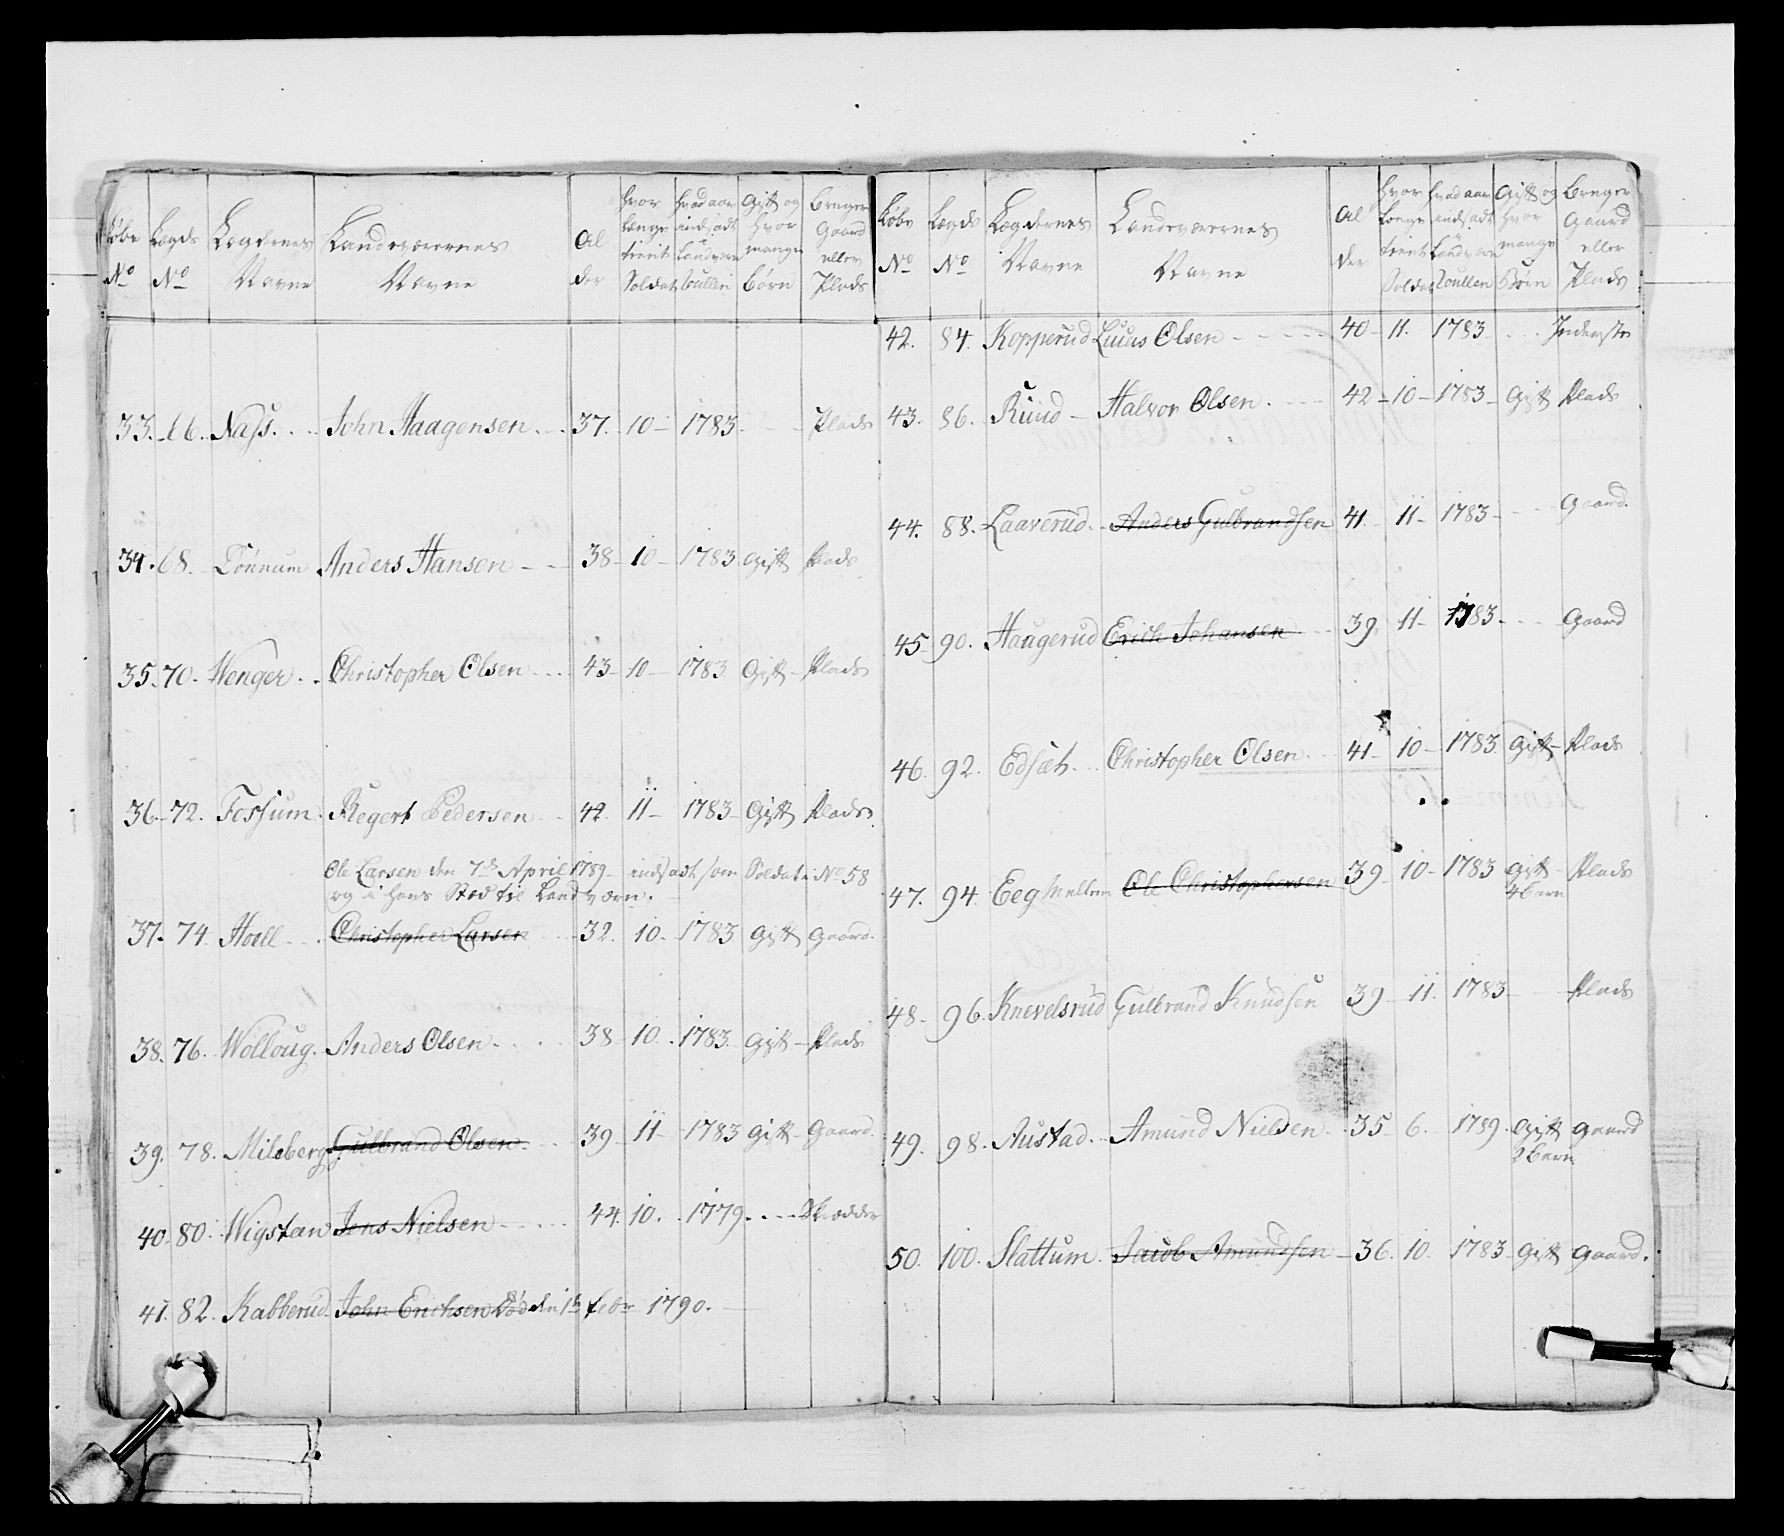 Løbe Lægds Lægdernes Landeværernes Al Hvor Hvad aar Gift og Bruger
No No Navne Navne der længe indsadt Hvor Gaard
tient i Landværn mange eller
Soldat Roullen Børn Plads
33. 66. Næss. John Haagensen 37. 10 1783 Plads
34. 68. Tønnum Anders Hansen 38 10 1783 Gift Plads
35. 70. Wenger Christopher Olsen 43 10 1783 Gift Plads
36. 72. Fossum Regert Pedersen 42 11 1783 Gift Plads
Ole Larsen den 7de April 1789 indsadt som Soldat i No 58
og i hans Sted til Landværn.
37. 74. Hoell Christopher Larsen 32. 10. 1783 Gift Gaard.
38. 76. Wølloug. Anders Olsen 38 10. 1783 Gift Plads
39. 78. Milsberg Gulbrand Olsen 39 11 1783 Gift Gaard.
40. 80. Wigstæn Jens Nielsen 44. 10. 1779 Skrædder
41. 82. Kabberud. John Erichsen Død den 1te febr 1790.
Løbe Lægds Lægdernes Landeværernes Al Hvor Hvad aar Gift og Bruger
No No Navne Navne der længe indsadt Hvor Gaard
tient i Landværn mange eller
Soldat Roullen Børn Plads
42. 84. Kopperud Lucas Olsen 40 11. 1783 Inderste
43. 86. Ruud Halvor Olsen. 42 10 1783 Gift Plads
44. 88. Laaverud. Anders Gulbrandsen 41. 11 1783 Gaard.
45 90. Haugerud Erich Johansen 39. 11 1783 Gaard
46. 92. Edsæt. Christopher Olsen 41 10 1783 Gift Plads
47. 94. Eeg mellem Ole Christophersen 39 10 1783 Gift Plads
4 børn
48. 96. Knevelsrud Gulbrand Knudsen 39 11. 1783 Plads
49. 98. Austad. Amund Nielsen 35 6. 1789. Gift Gaard
2 børn
50. 100. Slattum. Jacob Amundsen 36. 10. 1783 Gift Gaard.